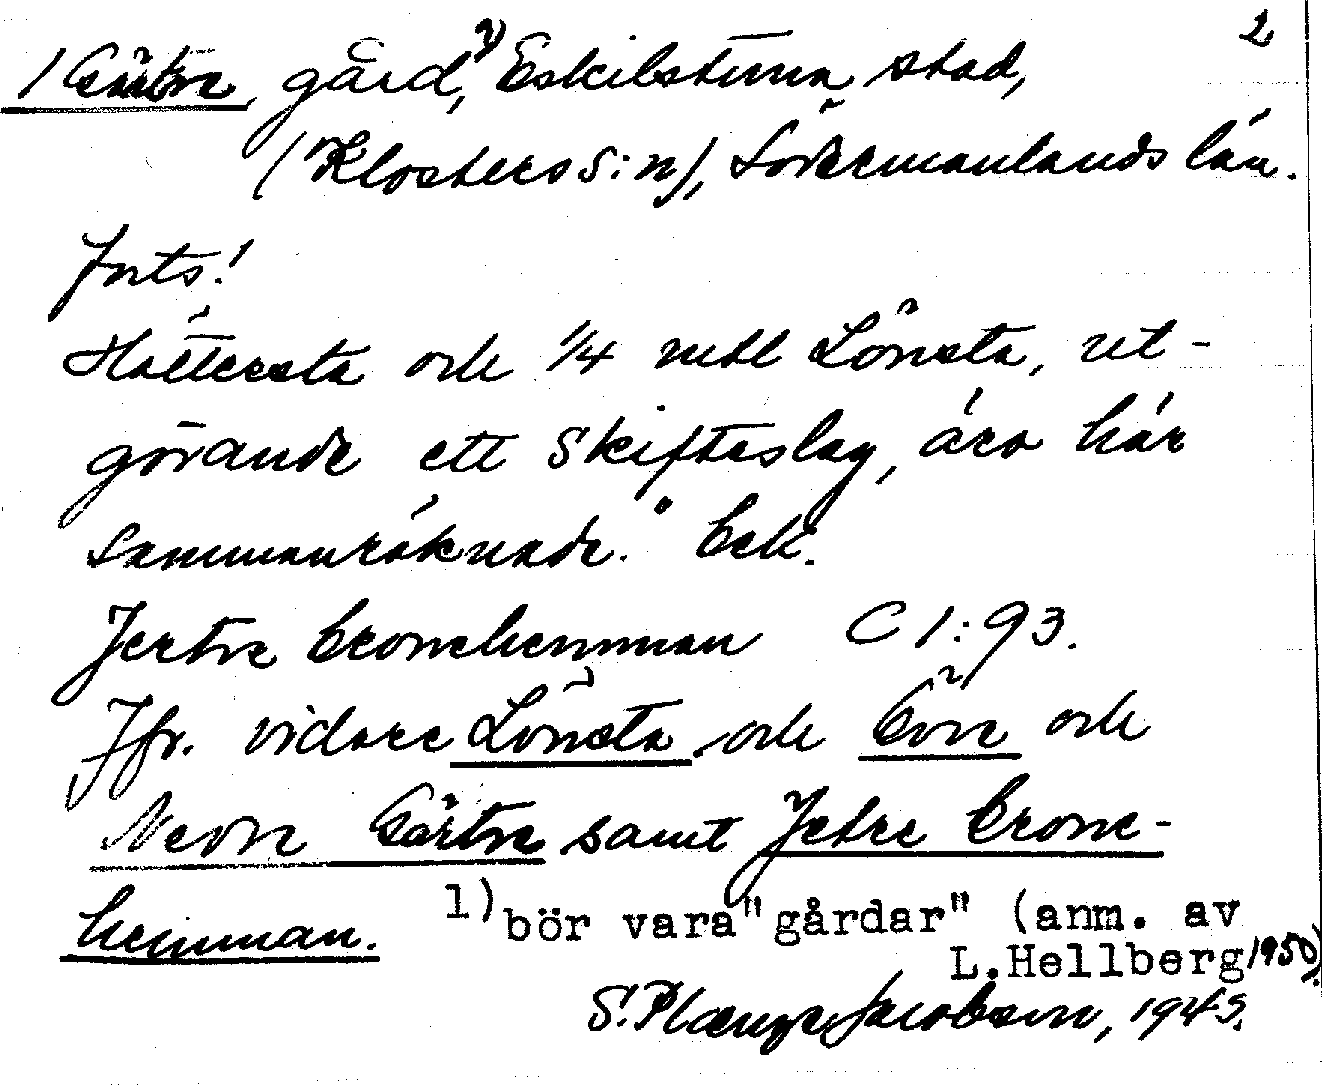 2
/ Gärtre, gård,¹⁾ Eskilstuna stad,
(Klosters S:n), Södermanlands län.
Forts!
Hällersta och 1/4 mtl Lönsta, ut-
görande ett Skifteslag, äro här
sammanräknade." Cek.
Jertre Cronehemman C 1:93.
Jfr. vidare Lönsta och Övre och
Nedre Gärtre samt Jetre Crone-
hemman.
1) bör vara "gårdar" (anm. av
L.Hellberg 1950).
S. Jacobson, 1945.